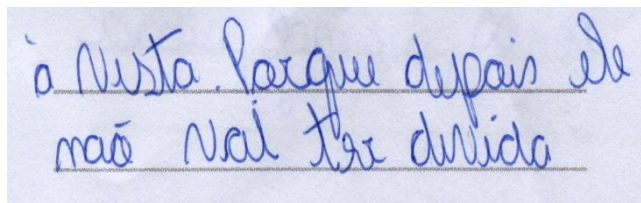 à vista. Porque depois ele
não vai ter divida